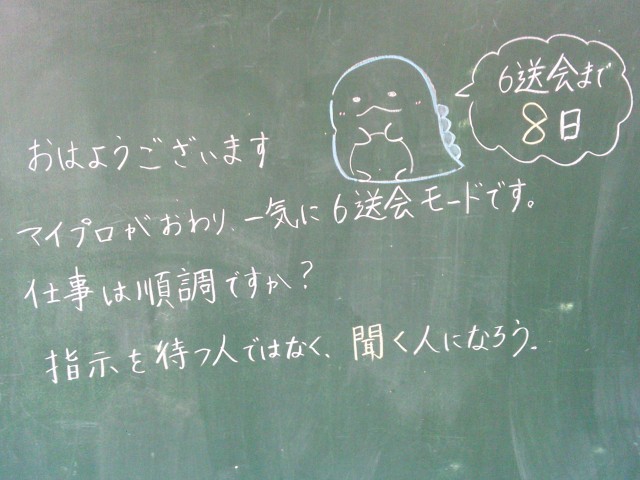 6送会まで
8日
おはようございます
マイプロがおわり、一気に6送会モードです。
仕事は順調ですか？
指示を待つ人ではなく、聞く人になろう。